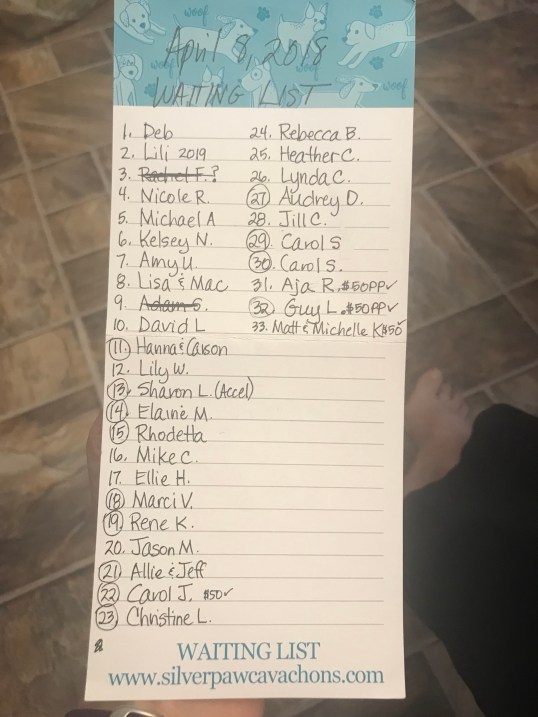 woof
woof
woof
woof
April 8, 2018
WAITING LIST
1. Deb
2. Lili 2019
3. Rachel F.?
4. Nicole R.
5. Michael A
6. Kelsey N.
7. Amy U.
8. Lisa & Mac
9. Adam S.
10. David L
11. Hanna & Carson
12. Lily W.
13. Sharon L. (Accel)
14. Elaine M.
15. Rhodetta
16. Mike C.
17. Ellie H.
18. Marci V.
19. Rene K.
20. Jason M.
21. Allie & Jeff
22. Carol J. $50✓
23. Christine L.
24. Rebecca B.
25. Heather C.
26. Lynda C.
27. Audrey D.
28. Jill C.
29. Carol S
30. Carol S.
31. Aja R. $50PP✓
32. Guy L. $50PP✓
33. Matt & Michelle K $50✓
WAITING LIST
www.silverpawcavachons.com